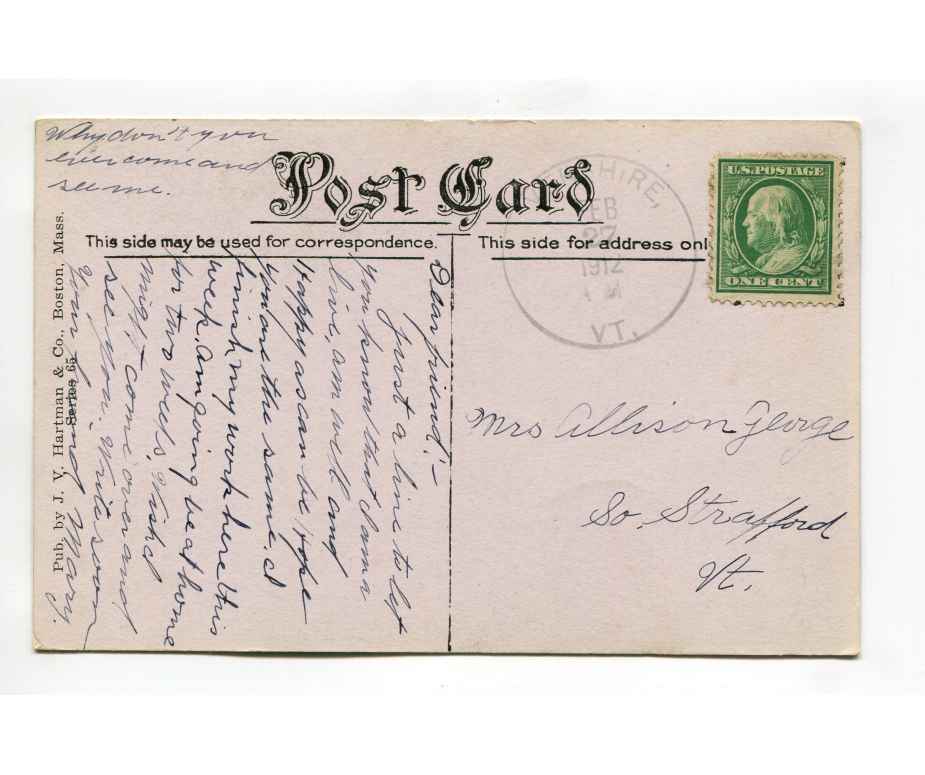 Why don't you
ever come and
see me.
Post Card
This side may be used for correspondence.
This side for address onl
HIRE,
FEB
27
1912
M
VT.
U.S. POSTAGE
ONE CENT
Mrs Allison George
So. Strafford
Vt.
Dear friend:-
Just a line to let
you know that I am a
live, am well and
Happy as can be hope
you are the same. I
finish my work here this
week. Am going be at home
for two weeks. Wish I
might come over and
see you. Write soon
Your friend Mary.
Pub. by J. V. Hartman & Co., Boston, Mass.
Series 65